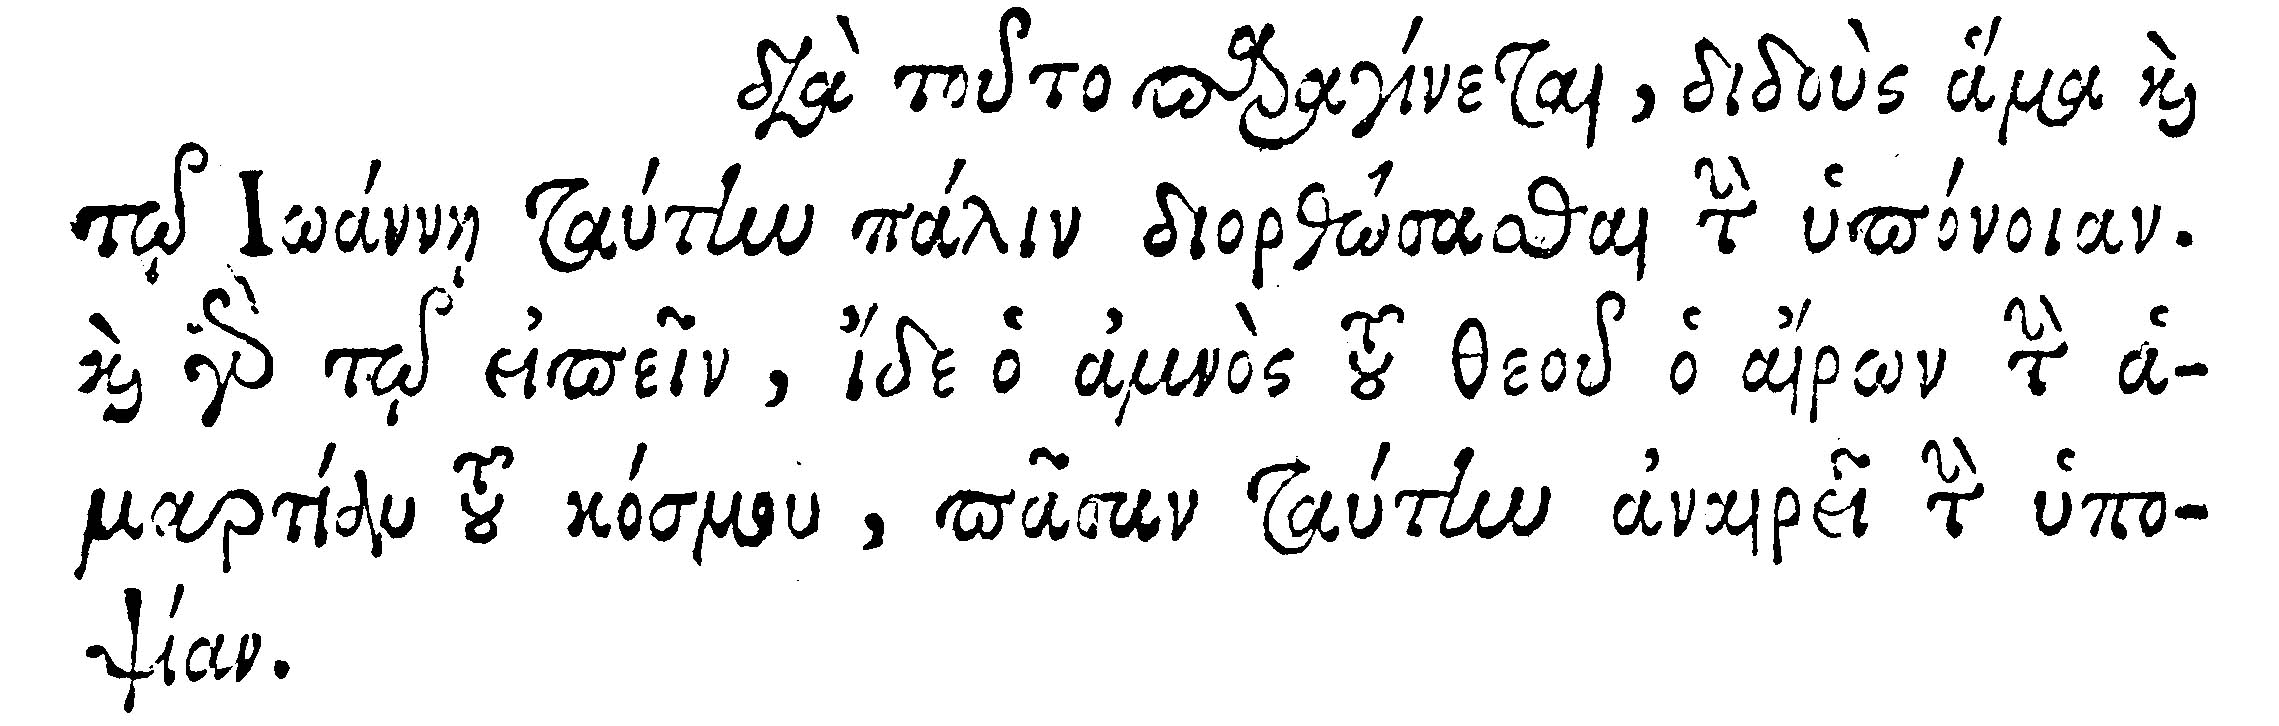 διὰ τοῦτο παραγίνεται, διδοὺς ἅμα καὶ
τῷ Ἰωάννῃ ταύτην πάλιν διορθώσασθαι τὴν ὑπόνοιαν.
καὶ γὰρ τῷ εἰπεῖν, ἴδε ὁ ἀμνὸς τοῦ θεοῦ ὁ αἴρων τὴν ἁ-
μαρτίαν τοῦ κόσμου, πᾶσαν ταύτην ἀναιρεῖ τὴν ὑπο-
ψίαν.